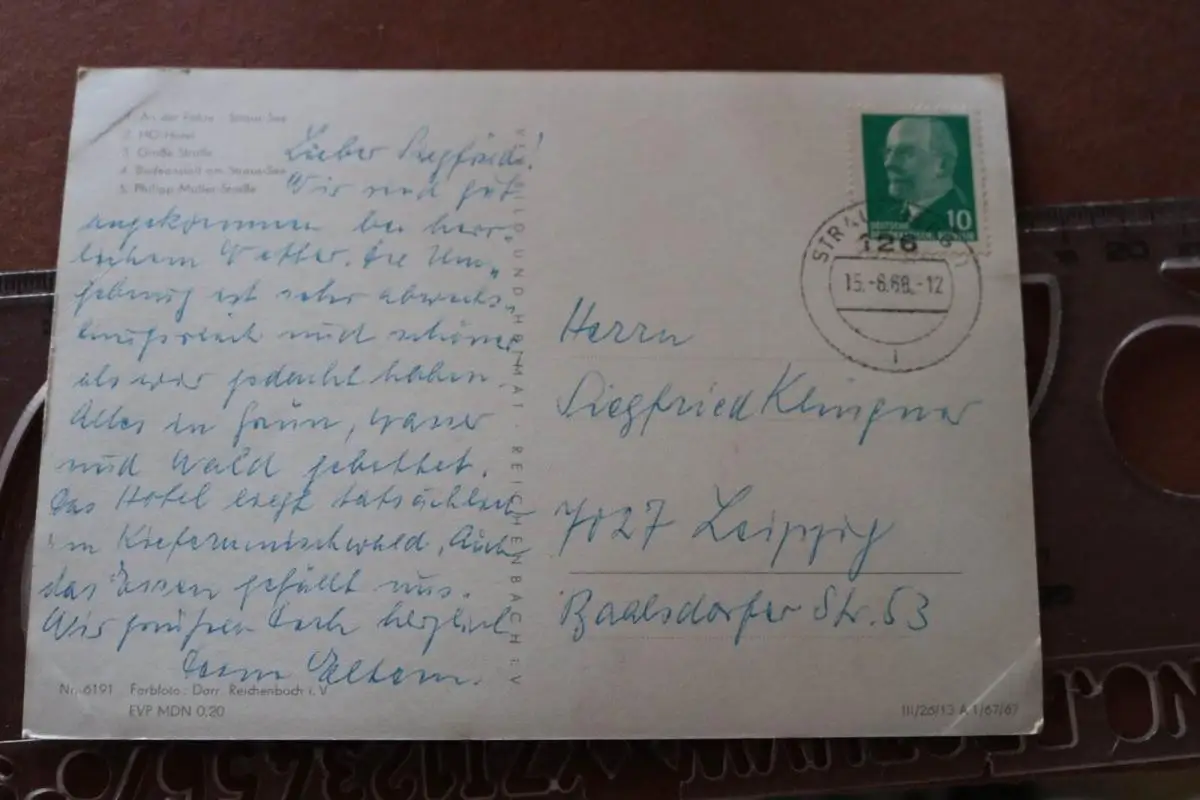 1 An der Fähre - Straus-See
2 HO-Hotel
3 Große Straße
4 Badeanstalt am Straus-See
5 Philipp-Müller-Straße
Lieber Siegfried!
Wir sind gut
angekommen bei herr-
lichem Wetter. Die Um-
gebung ist sehr abwechs-
lungsreich und schöner
als wir gedacht haben.
Alles in Grün, Wasser
und Wald gebettet.
Das Hotel liegt tatsächlich
im Kiefernmischwald. Auch
das Essen gefällt uns.
Wir grüßen Dich herzlich
Deine Eltern.
Nr. 6191 Farbfoto: Darr, Reichenbach i. V.
EVP MDN 0,20
BILD UND HEIMAT · REICHENBACH I. V
10
DEUTSCHE
126
15.-8.68.-12
Herrn
Siegfried Klingner
7027 Leipzig
Baalsdorfer Str. 53
III/26/13 A 1/67/67